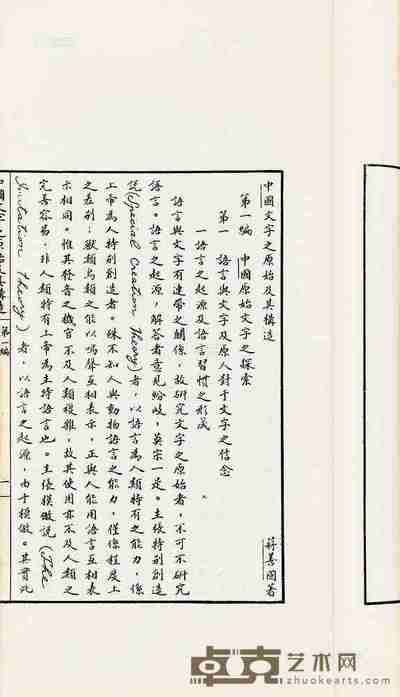 中國文字之原始及其構造
蔣善國著
第一編　中國原始文字之探索
第一　語言與文字及原人對于文字之信念
一　語言之起源及語言習慣之形成
語言與文字有連帶之關係，故研究文字之原始者，不可不研究
語言。語言之起源，解答者意見紛岐，莫宗一是。主張特別創造
說(Special Creation Theory)者，以語言為人類特有之能力，係
上帝為人特別創造者。殊不知人與動物語言之能力，僅係程度上
之差別；獸類鳥類之能以鳴聲互相表示，正與人能用語言互相表
示相同。惟其發音之機官不及人類複雜，故其使用亦不及人類之
完善容易，非人類特有上帝為主持語言也。主張模倣說(The
Imitation Theory)者，以語言之起源，由于模倣。其實此
中國文字之原始及其構造　第一編
卓克艺术网
zhuokearts.com